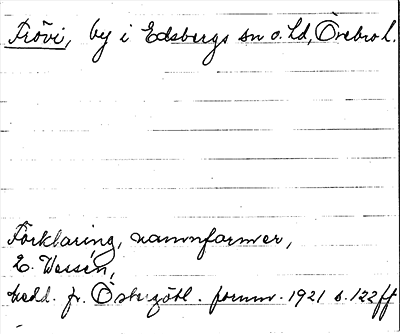 Frövi, by i Edsbergs sn o. hd, Örebro l.
Förklaring, namnformer,
E. Wessén,
Medd. fr. Östergötl. fornm. 1921 s. 122ff